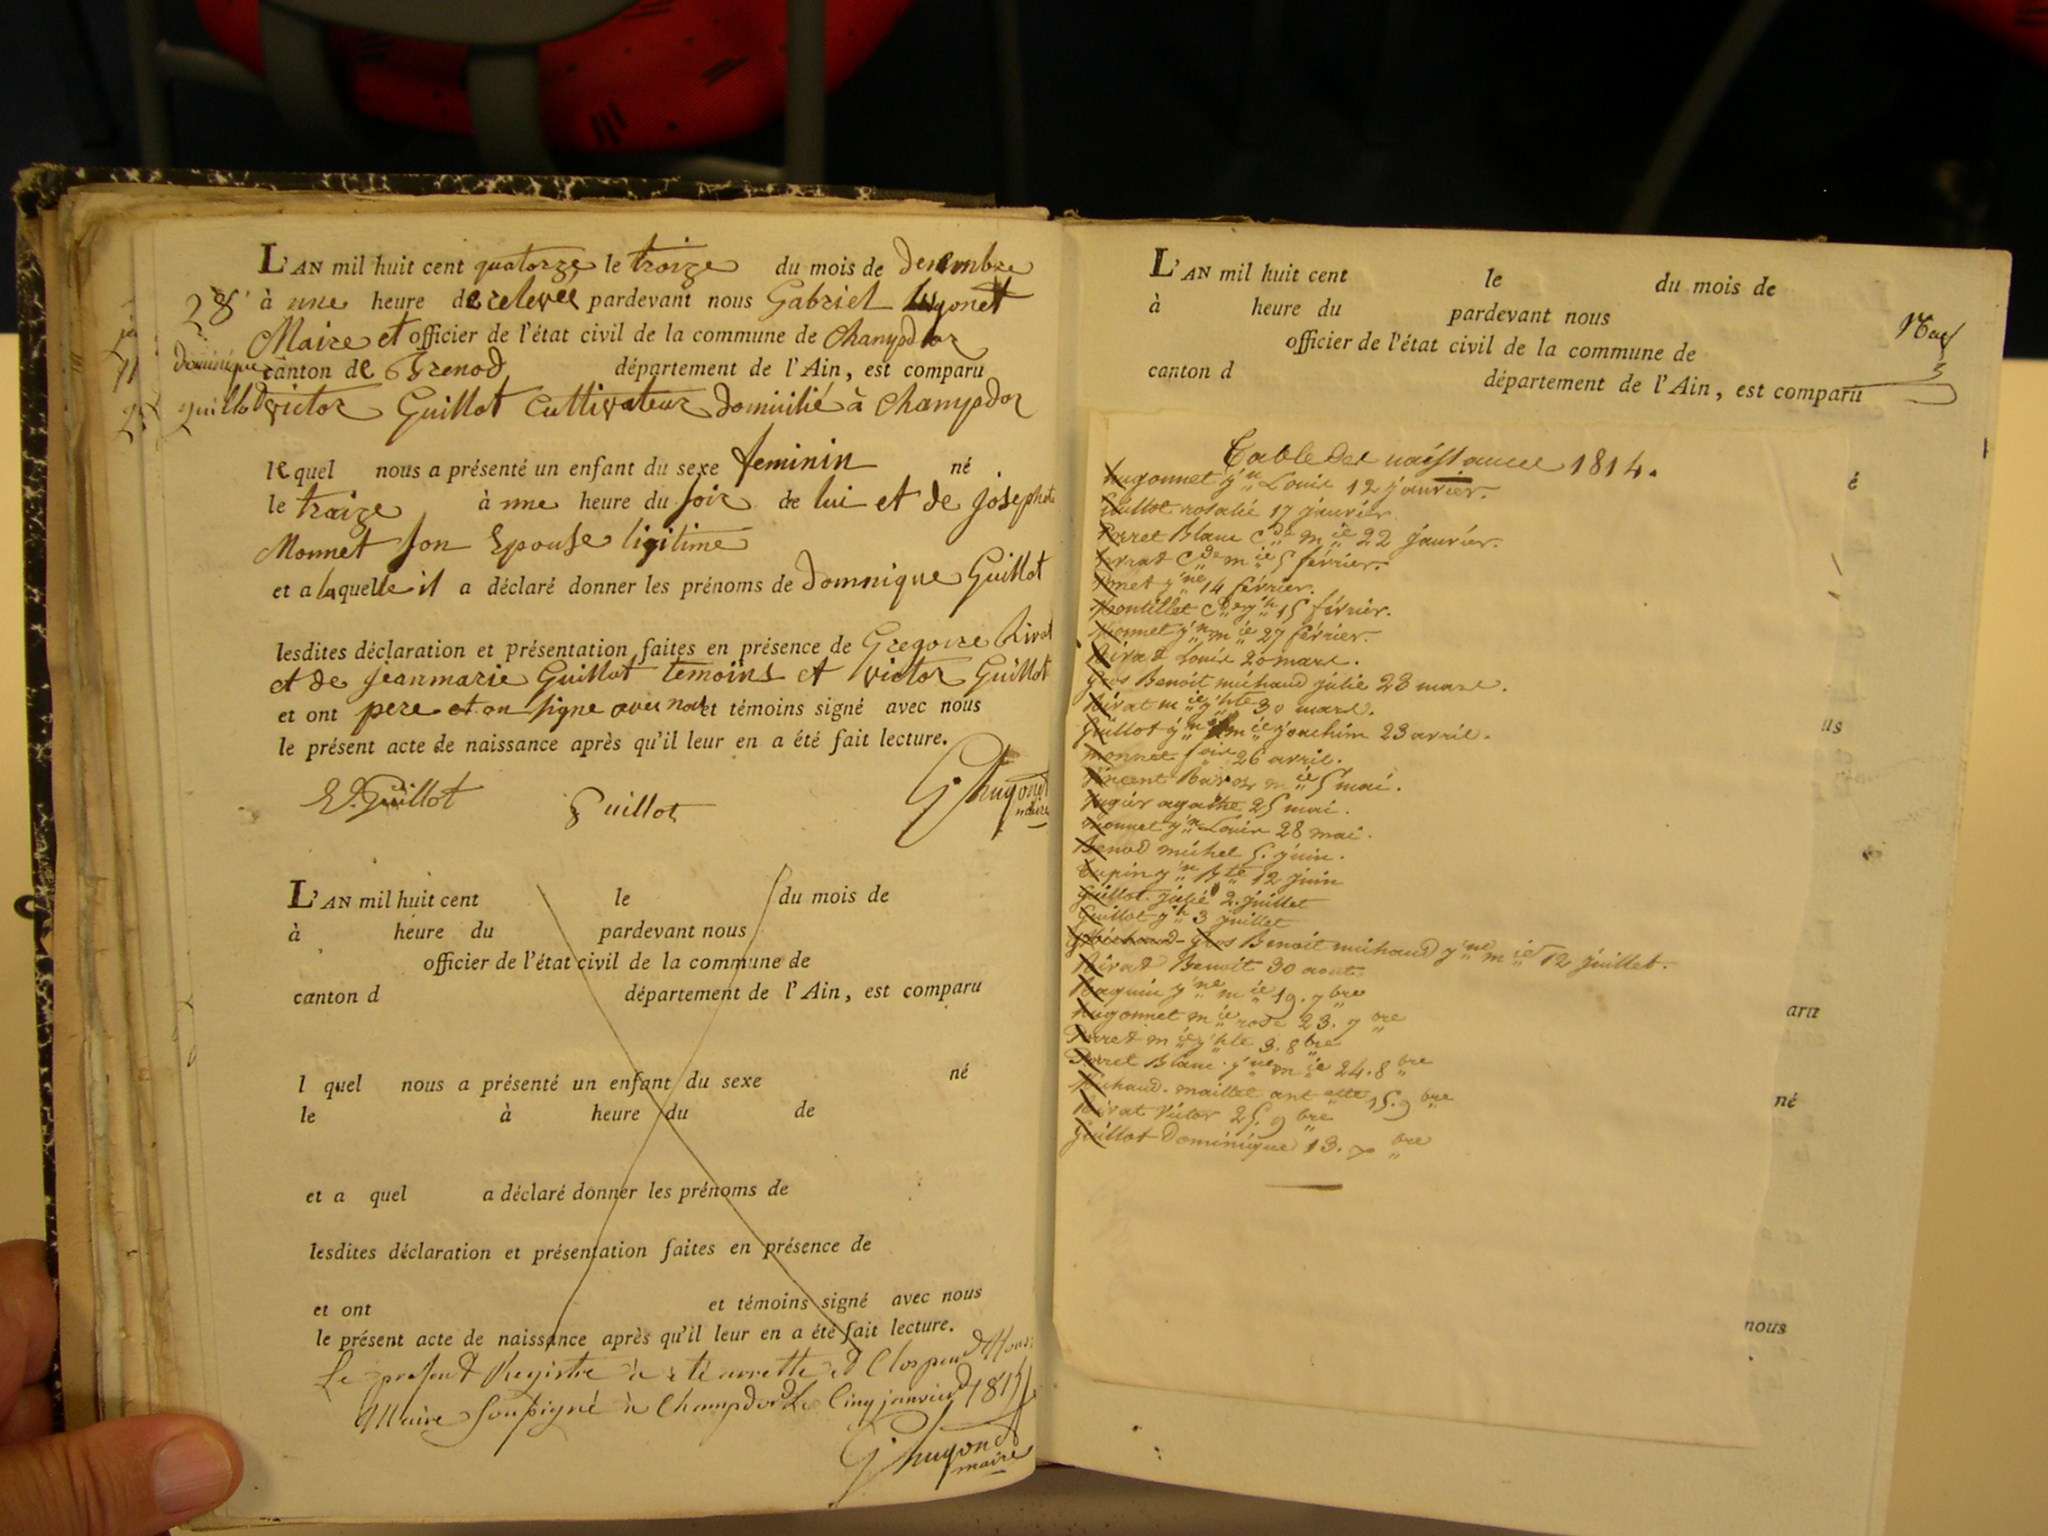 L'AN mil huit cent quatorze le traize du mois de decembre
28 à une heure de relevee pardevant nous Gabriel hugonet
Maire et officier de l'état civil de la commune de Champdor
dominique canton de Brenod département de l'Ain, est comparu
guillot victor Guillot Cultivateur domicilié à Champdor
lequel nous a présenté un enfant du sexe feminin né
le traize à une heure du soir de lui et de josephte
Monnet son Epouse ligitime
et a laquelle il a déclaré donner les prénoms de Domnique Guillot
lesdites déclaration et présentation faites en présence de Gregoire Livet
et de jeanmarie Guillot temoins et victor Guillot
et ont pere et on signe avec nous et témoins signé avec nous
le présent acte de naissance après qu'il leur en a été fait lecture.
V. Guillot Guillot G hugonet
maire
L'AN mil huit cent le du mois de
à heure du pardevant nous
officier de l'état civil de la commune de
canton d département de l'Ain, est comparu
l quel nous a présenté un enfant du sexe né
le à heure du de
et a quel a déclaré donner les prénoms de
lesdites déclaration et présentation faites en présence de
et ont et témoins signé avec nous
le présent acte de naissance après qu'il leur en a été fait lecture.
Le present Registre à eté arretté et Clos par Nous
Maire soussigné à Champdor Le Cinq janvier 1815
G hugonet
maire
L'AN mil huit cent le du mois de
à heure du pardevant nous
officier de l'état civil de la commune de
canton d département de l'Ain, est comparu
Table des naissances 1814.
hugonnet j'n Louis 12 janvier.
Guillot rosalie 17 janvier
Perret Blanc Cde mie 22 janvier.
Cde mie 5 février.
j'ne 14 février.
Montillet 15 février.
Monnet j'n mie 27 février.
Livet Louis 20 mars.
Gros Benoit michaud julie 28 mars.
mie j'hte 30 mars.
Guillot j'n mie joachim 23 avril.
monnet 26 avril.
Vincent mie 5 mai.
agathe 25 mai.
monnet j'n Louis 28 mai.
Benod michel 5. juin.
j'n Bte 12 juin
Guillot julie 2. juillet
Guillot j'h 3 juillet
Gros Benoit michaud j'ne mie 12 juillet.
Benoit 30 aout
j'ne mie 19. 7bre
hugonnet mie rose 23. 7bre
Perret mie j'hte 3. 8bre
Perret Blanc j'ne mie 24. 8bre
Michaud. maillet antette 15. 9bre
victor 25. 9bre
Guillot Dominique 13. Xbre
é
us
aru
né
nous